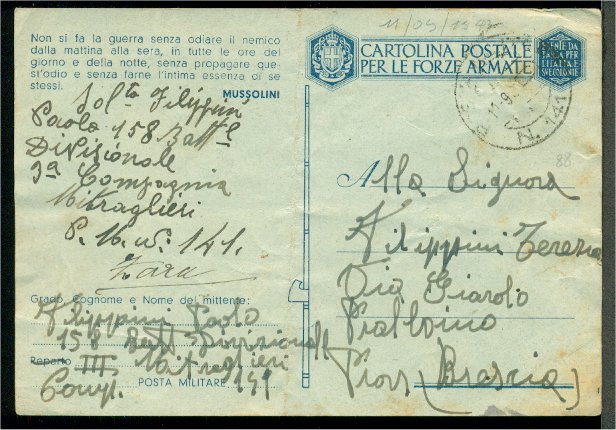 11/09/1942
Non si fa la guerra senza odiare il nemico
dalla mattina alla sera, in tutte le ore del
giorno e della notte, senza propagare que-
st'odio e senza farne l'intima essenza di se
stessi.
MUSSOLINI
CARTOLINA POSTALE
PER LE FORZE ARMATE
ESENTE DA
TASSA PER
L'ITALIA
E SUE COLONIE
N. 141
88
Sol.to Filippini
Paolo 158 Batt.
Divisionale
3a Compagnia
Mitraglieri
P. M. N. 141.
Zara
Grado, Cognome e Nome del mittente:
Filippini Paolo
158 Batt Divisionale
Reparto III Mitraglieri
Comp.
POSTA MILITARE 141
Alla Signora
Filippini Teresa
Via Giarolo
Pralboino
Prov (Brescia)